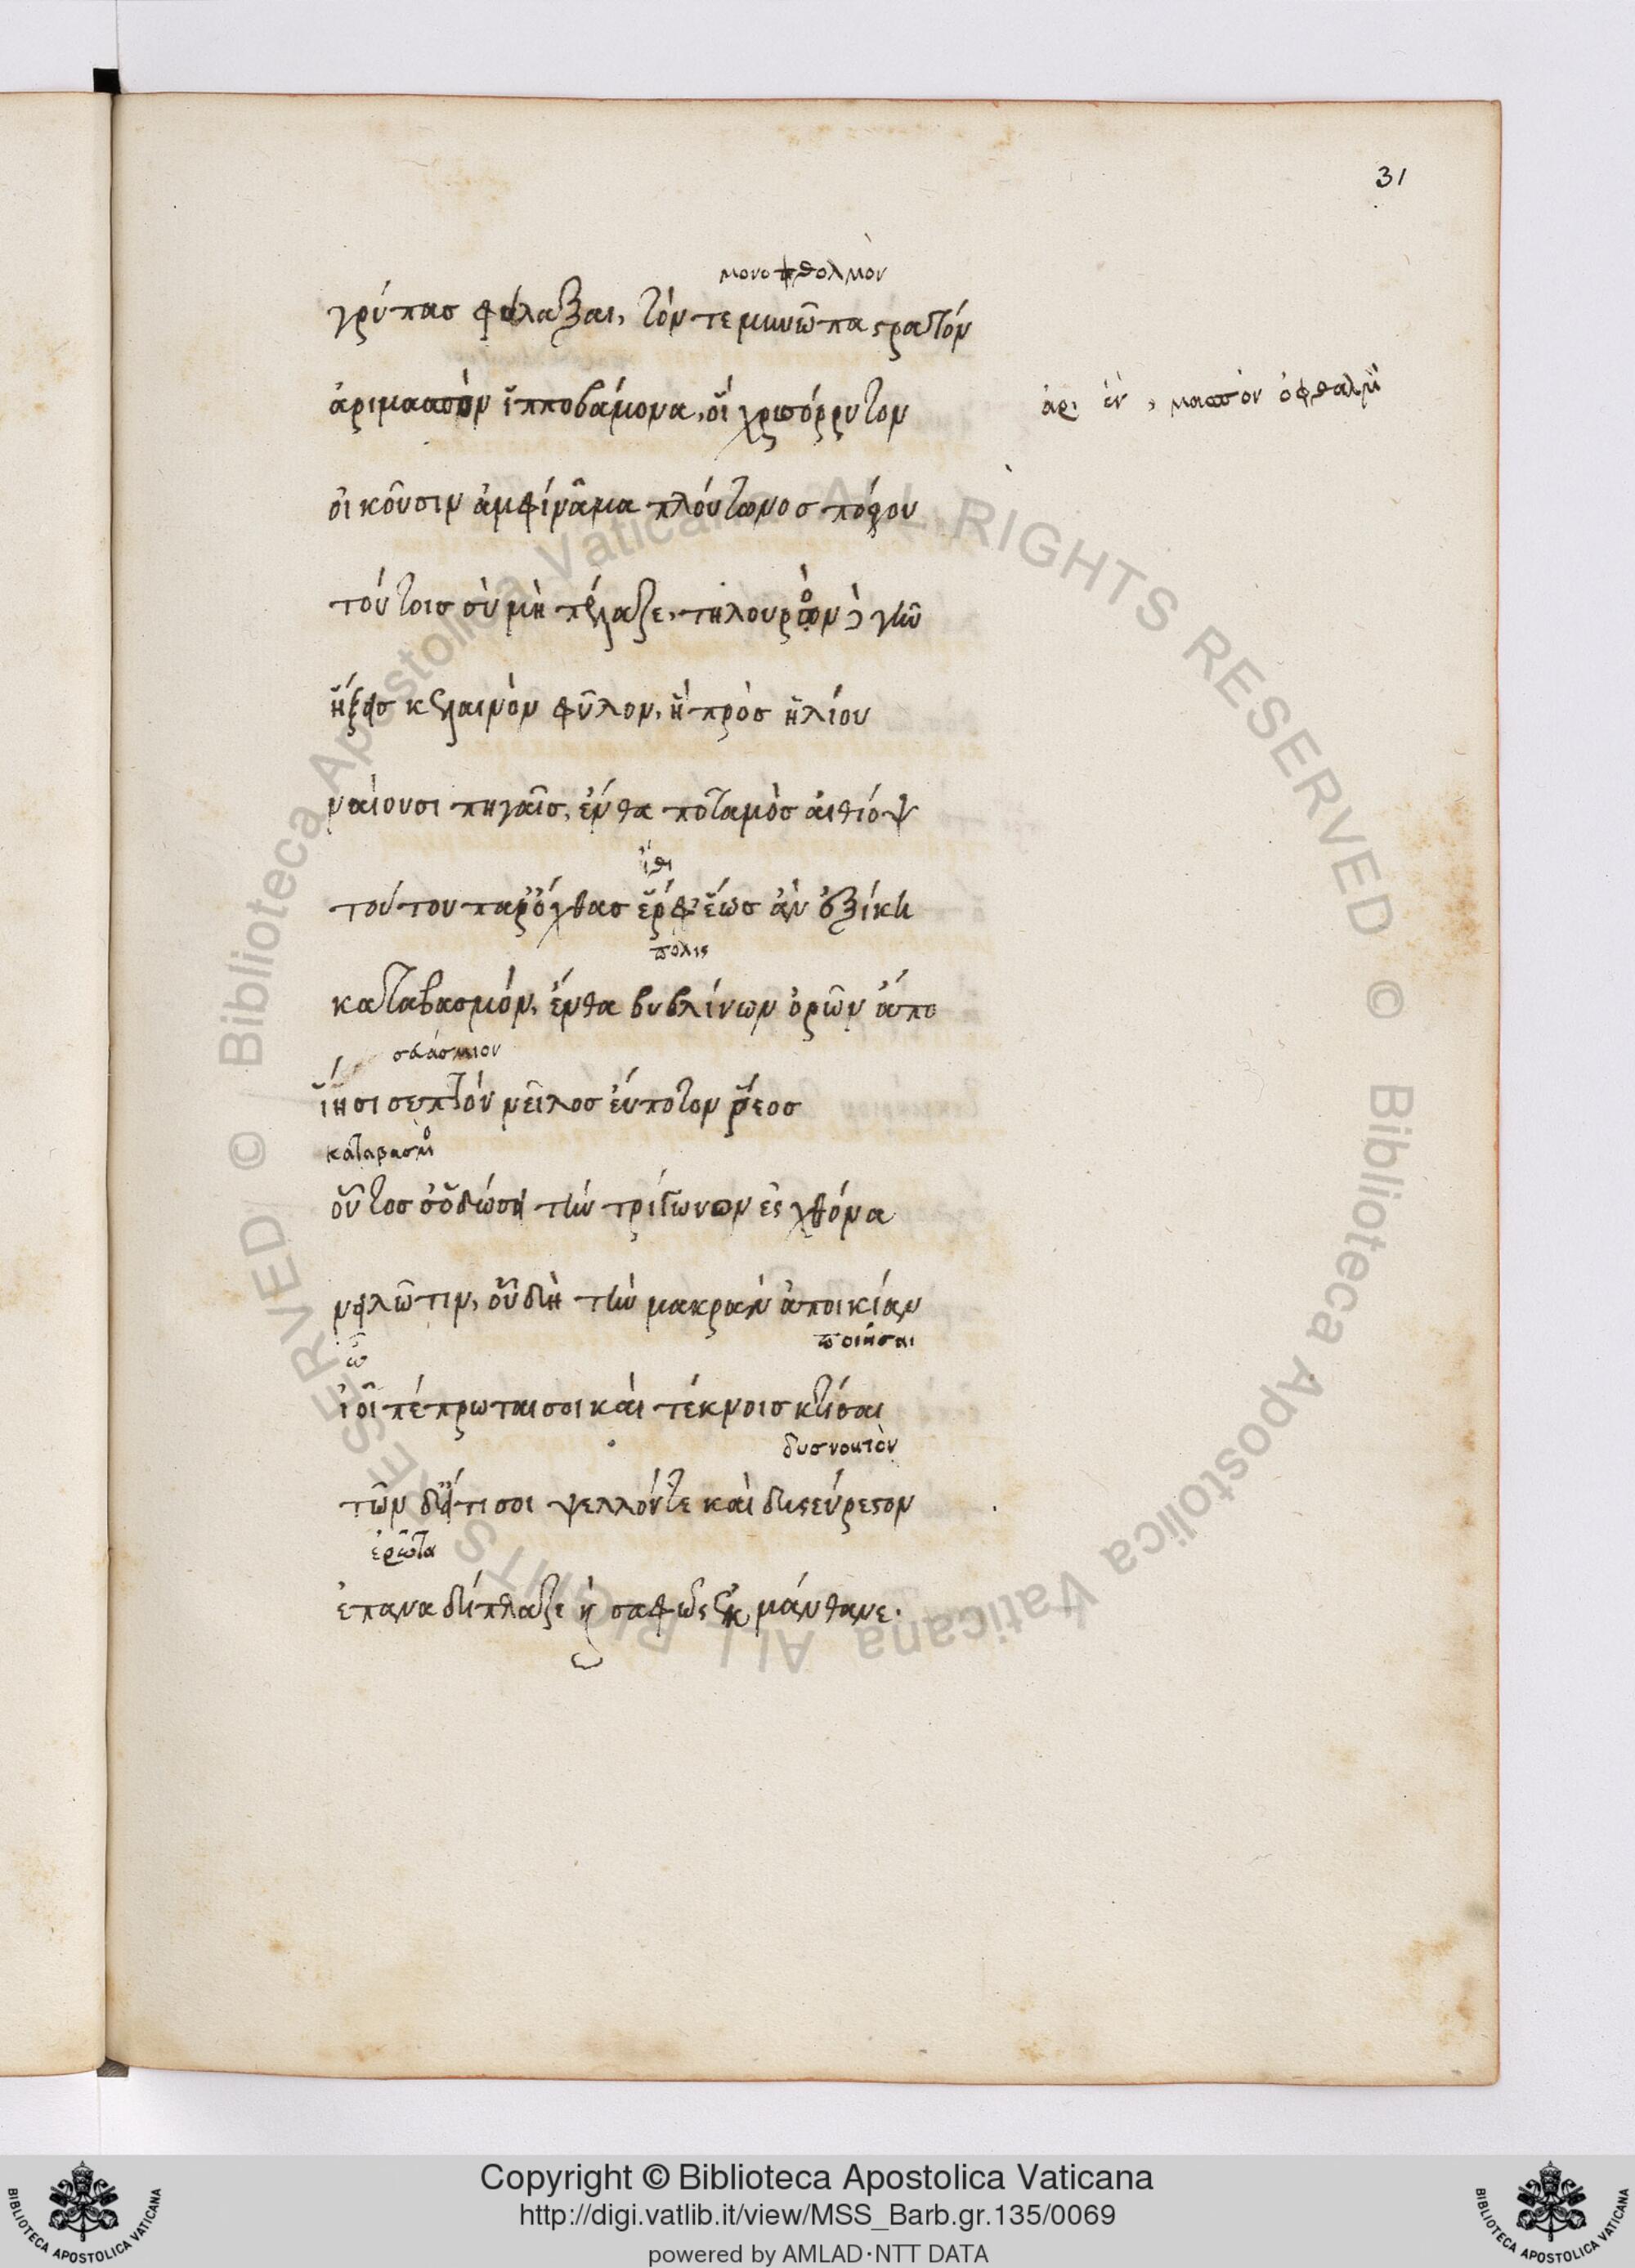 31
μονοφθολμὸν
γρύπασ φύλαξαι, τόν τε μουνῶπα στρατόν
ἀριμασπὸν ἱπποβάμονα, οἵ χρυσόρρυτον
ἀρι ἓν, μασπὸν ὀφθαλμὸν
οἰκοῦσιν ἀμφί νᾶμα πλούτωνοσ πόρου
τούτοισ σὺ μὴ πέλαζε, τηλουρὸν δὲ γῆν
ἥξεισ κελαινὸν φῦλον, οἵ πρὸσ ἡλίου
ναίουσι πηγαῖσ, ἔνθα ποταμὸσ αἰθίοψ
ἴθι
τούτου παρ' ὄχθασ ἕρφ' ἕωσ ἂν ἐξίκῃ
πόλις
καταβασμόν, ἔνθα βυβλίνων ὀρῶν ἄπο
σεβάσμιον
ἵησι σεπτόν νεῖλοσ εὔποτον ῥέοσ
καταβασμὸς
οὗτοσ σ' ὁδώσει τὴν τρίγωνον ἐς χθόνα
νειλῶτιν, οὗ δὴ τὴν μακρὰν ἀποικίαν
ὦ
ποιῆσαι
ἰοῖ πέπρωται σοι καὶ τέκνοισ κτίσαι
δυσνοητὸν
τῶν δ' εἴ τι σοι ψελλόν τε καὶ δυσεύρετον
ἐρώτα
ἐπαναδίπλαζε καὶ σαφῶς ἐκμάνθανε.
© Biblioteca Apostolica Vaticana ALL RIGHTS RESERVED © Biblioteca Apostolica Vaticana ALL RIGHTS RESERVED
Copyright © Biblioteca Apostolica Vaticana
http://digi.vatlib.it/view/MSS_Barb.gr.135/0069
powered by AMLAD·NTT DATA
BIBLIOTECA APOSTOLICA VATICANA
BIBLIOTECA APOSTOLICA VATICANA